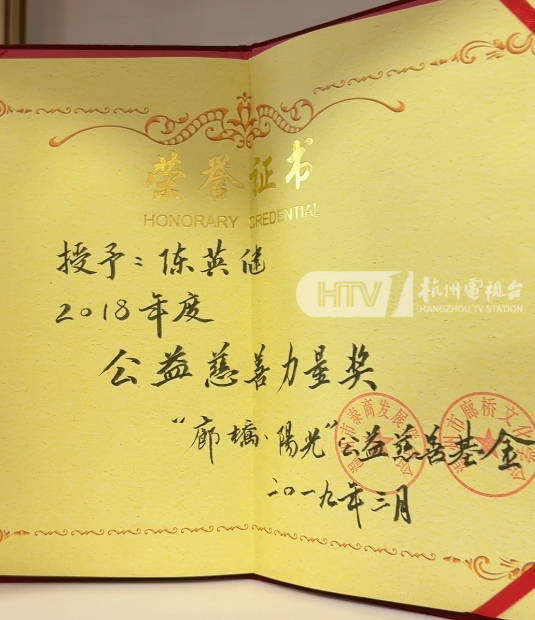 荣誉证书
HONORARY CREDENTIAL
授予：陈英健
2018年度
公益慈善力量奖
"廊橋·陽光"公益慈善基金
二〇一九年三月
HTV 杭州電視台
HANGZHOU TV STATION